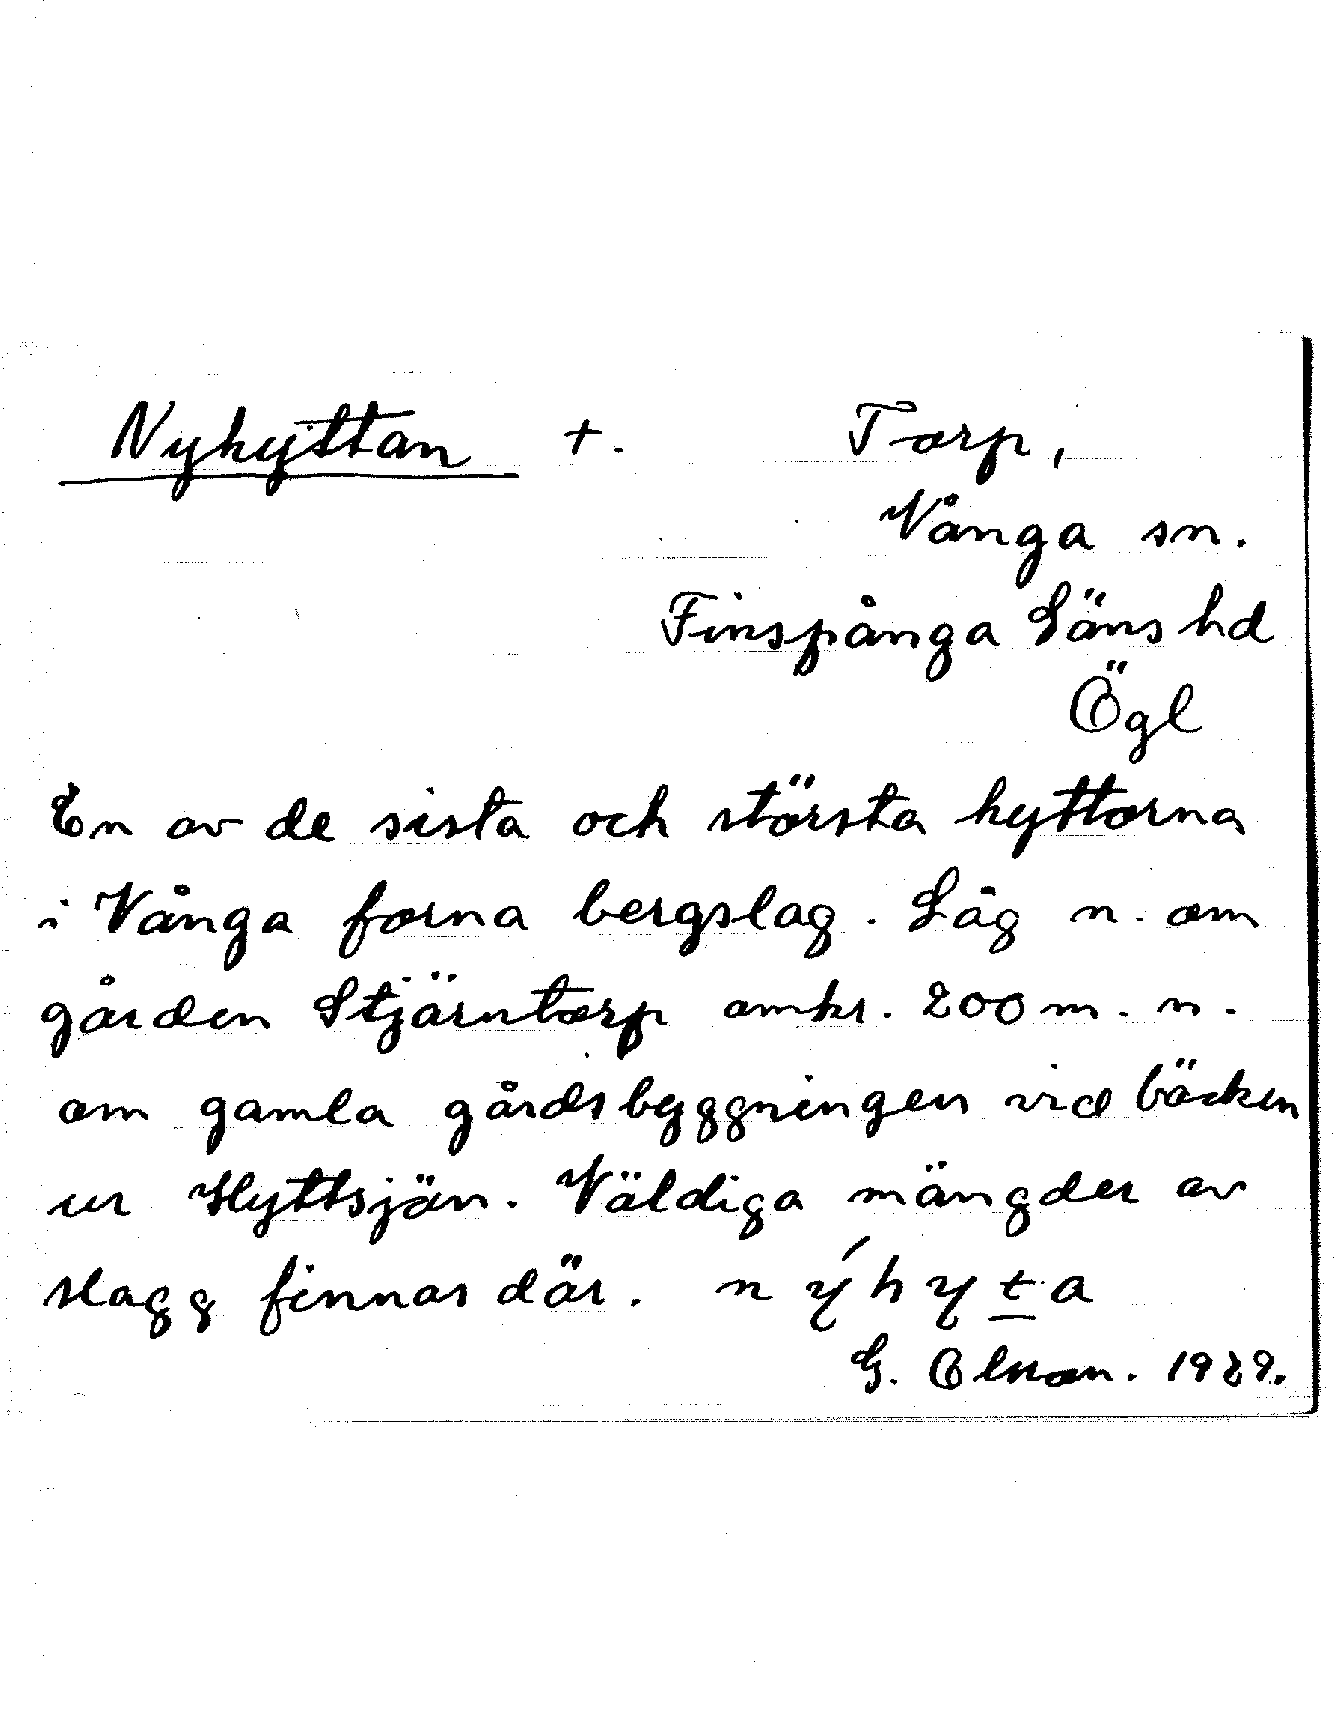 Nyhyttan +. Torp,
Vånga sn.
Finspånga Läns hd
Ögl
En av de sista och största hyttorna
i Vånga forna bergslag. Låg n. om
gården Stjärntorp omkr. 200 m. n.
om gamla gårdsbyggningen vid bäcken
ur Hyttsjön. Väldiga mängder av
slagg finnas där. n ý h y t a
G. Olson. 1929.